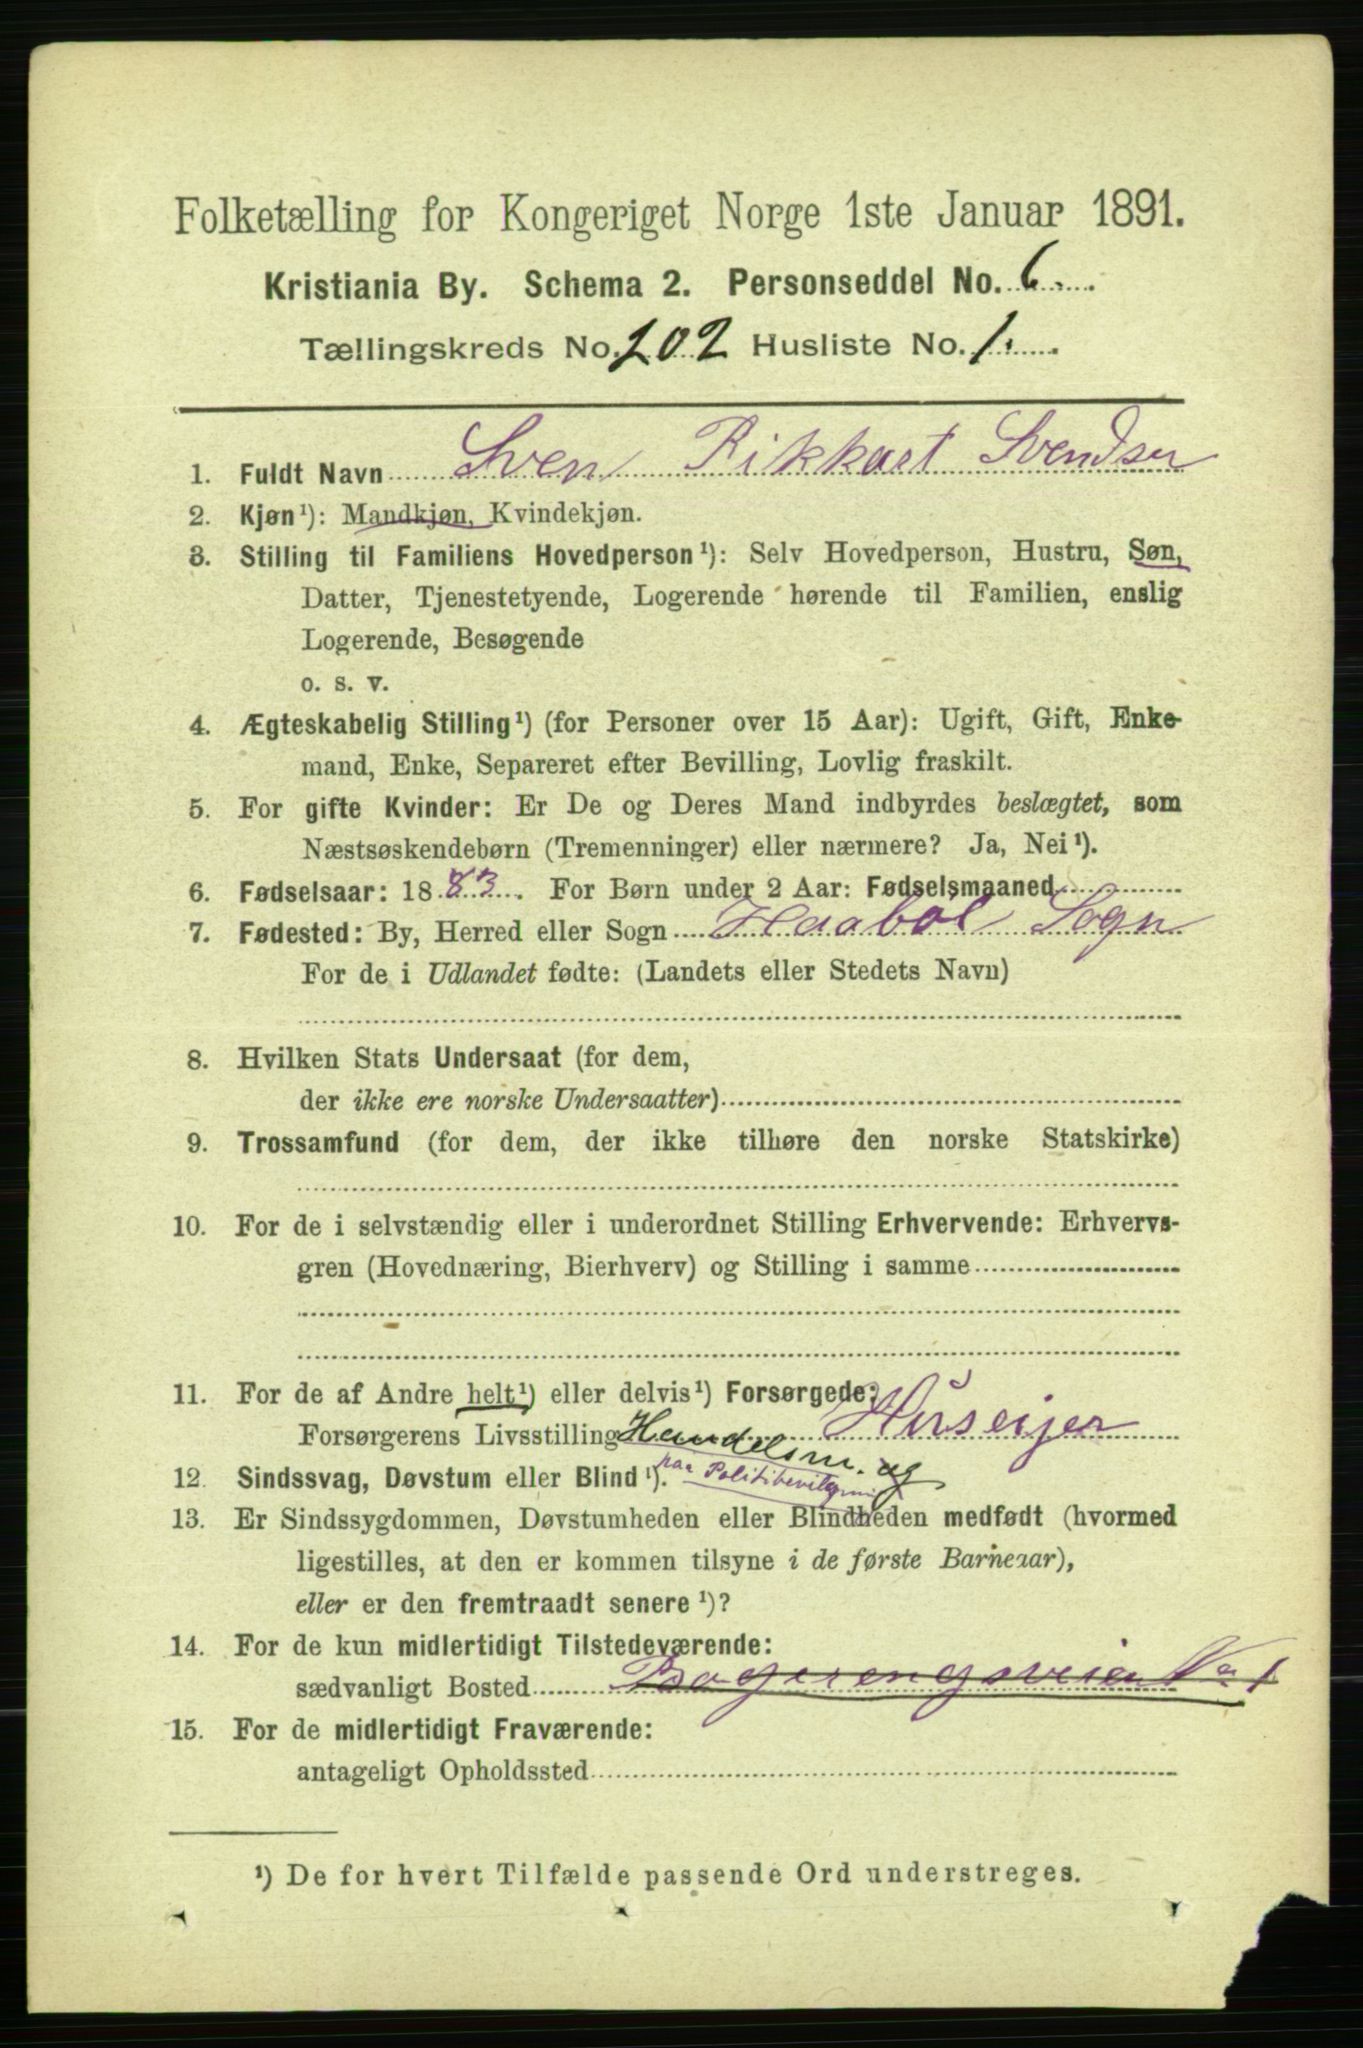 Folketælling for Kongeriget Norge 1ste Januar 1891.
Kristiania By. Schema 2. Personseddel No. 6.
Tællingskreds No. 202 Husliste No. 1.
1. Fuldt Navn Sven Rikkart Svendsen
2. Kjøn¹): Mandkjøn, Kvindekjøn.
3. Stilling til Familiens Hovedperson¹): Selv Hovedperson, Hustru, Søn,
Datter, Tjenestetyende, Logerende hørende til Familien, enslig
Logerende, Besøgende
o. s. v.
4. Ægteskabelig Stilling¹) (for Personer over 15 Aar): Ugift, Gift, Enke-
mand, Enke, Separeret efter Bevilling, Lovlig fraskilt.
5. For gifte Kvinder: Er De og Deres Mand indbyrdes beslægtet, som
Næstsøskendebørn (Tremenninger) eller nærmere? Ja, Nei¹).
6. Fødselsaar: 1883. For Børn under 2 Aar: Fødselsmaaned
7. Fødested: By, Herred eller Sogn Haabøl Sogn
For de i Udlandet fødte: (Landets eller Stedets Navn)
8. Hvilken Stats Undersaat (for dem,
der ikke ere norske Undersaatter)
9. Trossamfund (for dem, der ikke tilhøre den norske Statskirke)
10. For de i selvstændig eller i underordnet Stilling Erhvervende: Erhvervs-
gren (Hovednæring, Bierhverv) og Stilling i samme
11. For de af Andre helt¹) eller delvis¹) Forsørgede:
Forsørgerens Livsstilling Handelsm. og Huseijer
12. Sindssvag, Døvstum eller Blind¹). paa
13. Er Sindssygdommen, Døvstumheden eller Blindheden medfødt (hvormed
ligestilles, at den er kommen tilsyne i de første Barneaar),
eller er den fremtraadt senere¹)?
14. For de kun midlertidigt Tilstedeværende:
sædvanligt Bosted Bøgerengsveien No 1
15. For de midlertidigt Fraværende:
antageligt Opholdssted
¹) De for hvert Tilfælde passende Ord understreges.